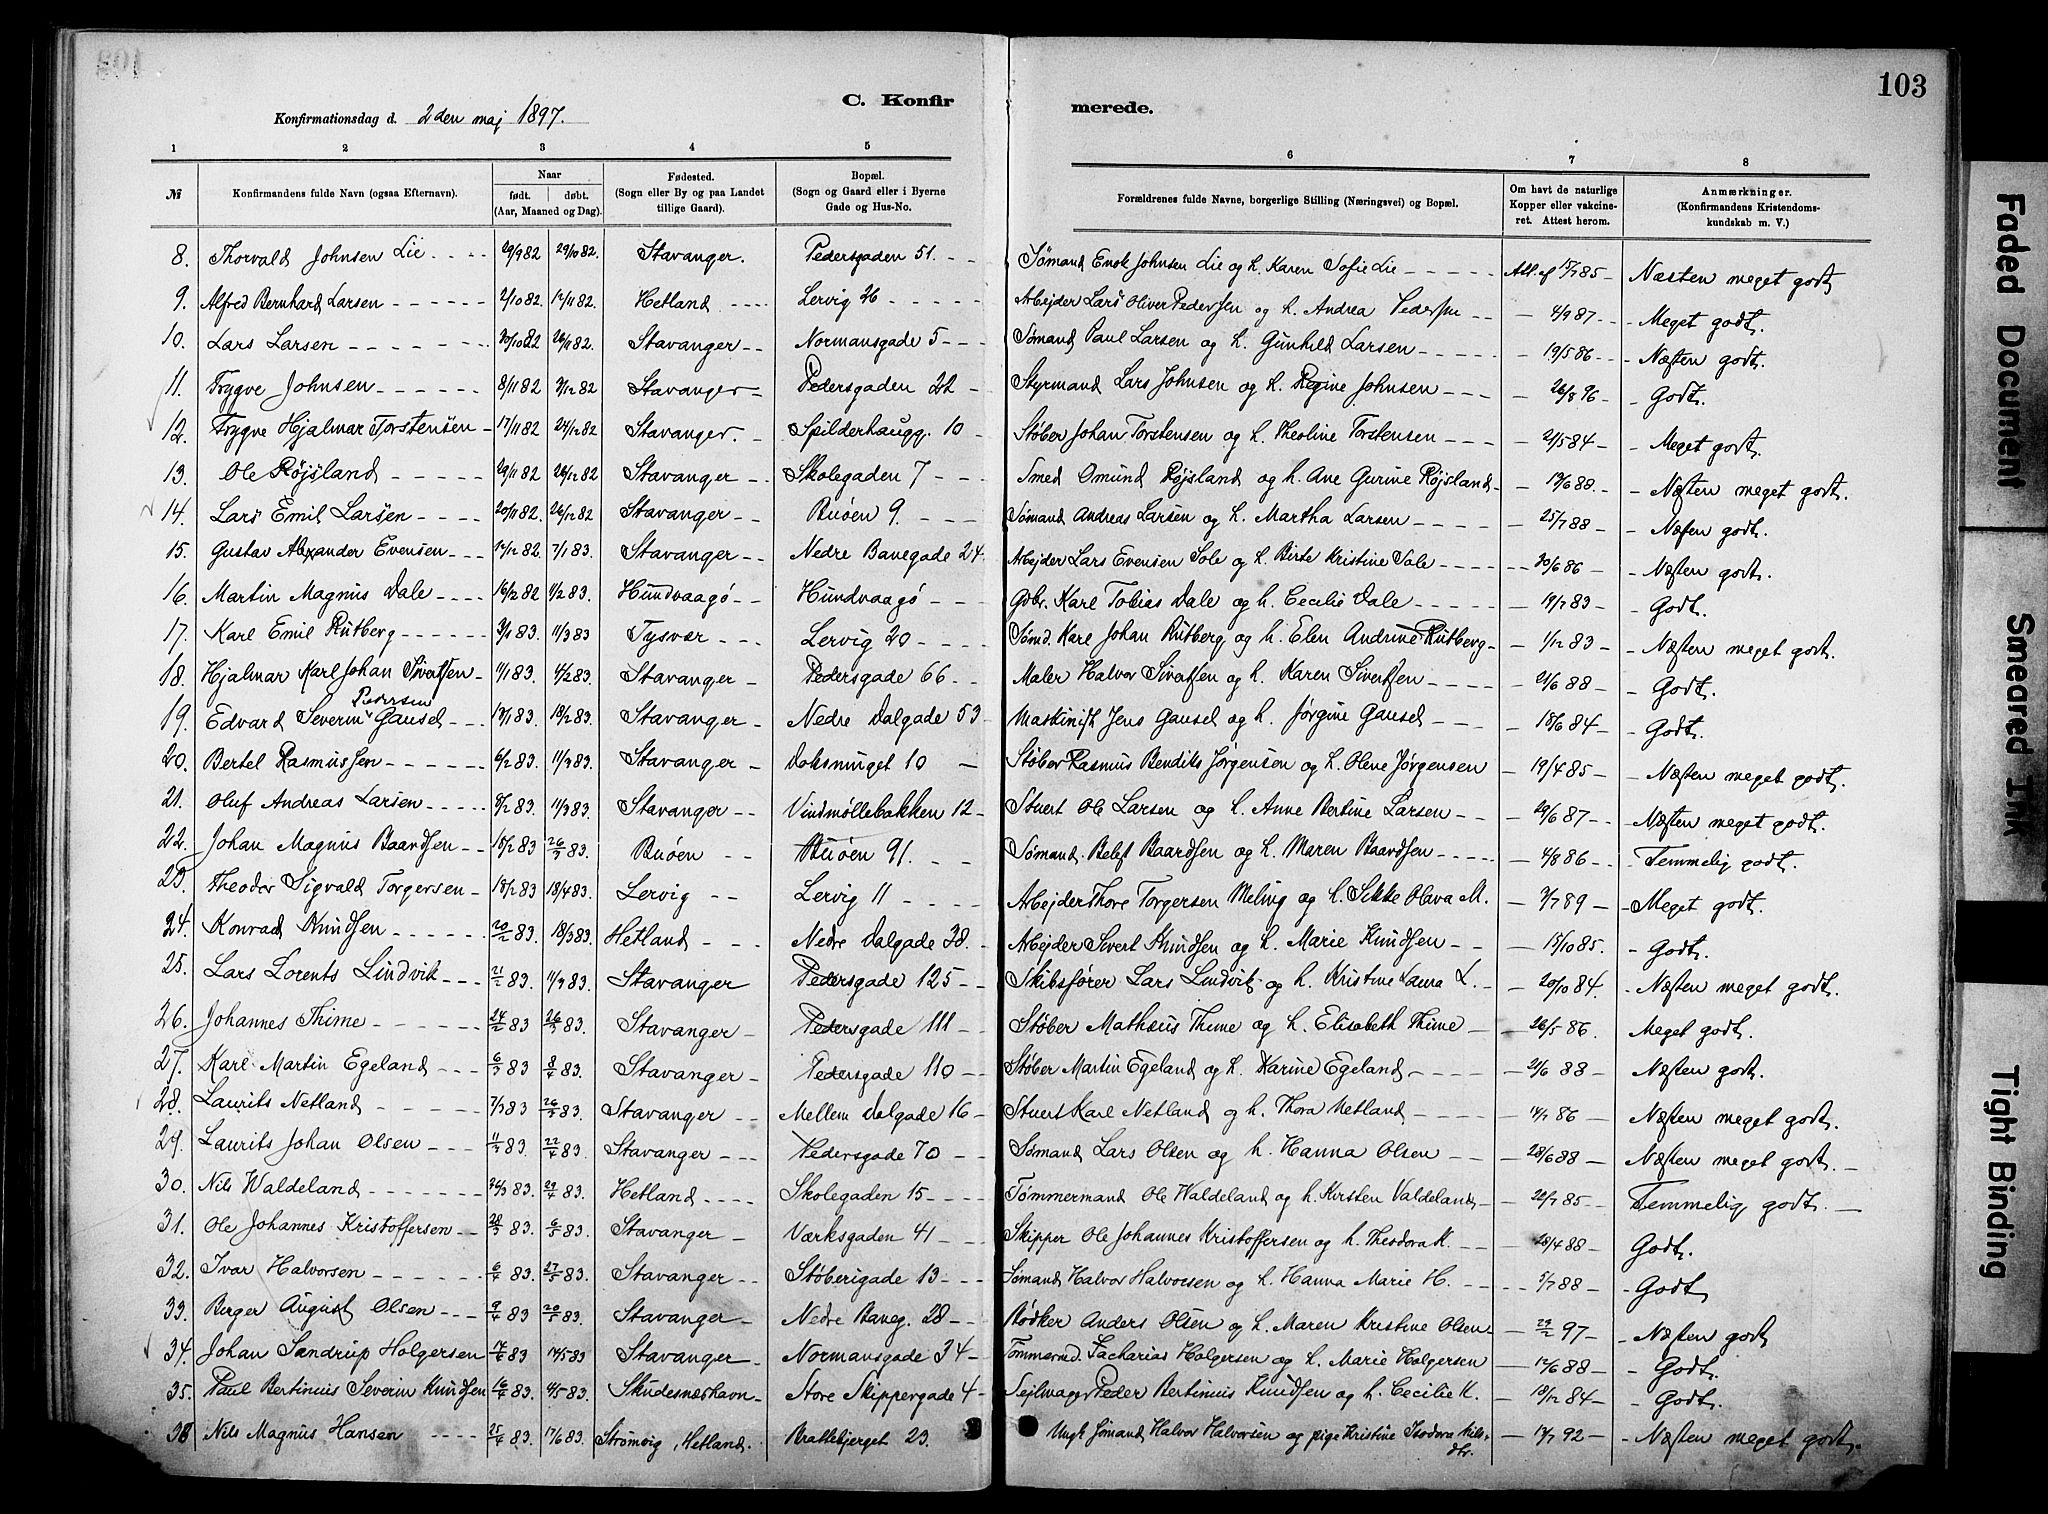 103
C. Konfirmerede.
Konfirmationsdag d. 2den maj 1897.
1 2 3 4 5 6 7 8
№ Konfirmandens fulde Navn (ogsaa Efternavn). Naar født. døbt. (Aar, Maaned og Dag). Fødested. (Sogn eller By og paa Landet tillige Gaard). Bopæl. (Sogn og Gaard eller i Byerne Gade og Hus-No. Forældrenes fulde Navne, borgerlige Stilling (Næringsvei) og Bopæl. Om havt de naturlige Kopper eller vakcineret. Attest herom. Anmærkninger. (Konfirmandens Kristendomskundskab m. V.)
8. Thorvald Johnsen Lie 29/9 82 29/10 82. Stavanger. Pedersgaden 51. Sømand Enok Johnsen Lie og h. Karen Sofie Lie Att. af 15/7 85 Næsten meget godt
9. Alfred Bernhard Larsen 2/10 82. 12/11 82. Hetland Lervig 26 Arbejder Lars Oliver Pedersen og h. Andrea Pedersen 4/9 87 Meget godt.
10. Lars Larsen 30/10 82 26/11 82. Stavanger Normansgade 5 Sømand Paul Larsen og h. Gunhild Larsen 19/5 86 Næsten godt.
11. Trygve Johnsen 8/11 82 3/12 82 Stavanger Pedersgaden 22 Styrmand Lars Johnsen og h. Regine Johnsen 26/8 96 Godt.
12. Trygve Hjalmar Torstensen 17/11 82 24/12 82 Stavanger. Spilderhaugg. 10 Støber Johan Torstensen og h. Theoline Torstensen 21/5 84 Meget godt.
13. Ole Røjsland 29/11 82 26/12 82 Stavanger Skolegaden 7 Smed Omund Røjsland og h. Ane Gurine Røjsland 19/6 88. Næsten meget godt.
14. Lars Emil Larsen 20/11 82. 26/12 82 Stavanger Buøen 9. Sømand Andreas Larsen og h. Martha Larsen 25/7 88 Næsten godt.
15. Gustav Alexander Evensen 12/12 82. 7/1 83. Stavanger Nedre Banegade 24. Arbejder Lars Evensen Sole og h. Birte Kristine Sole 30/6 86 Næsten godt.
16. Martin Magnus Dale 16/12 82 11/2 83. Hundvaagø Hundvaagø Gdbr. Karl Tobias Dale og h. Cecilie Dale 19/7 83 Godt.
17. Karl Emil Rutberg 3/1 83. 11/3 83 Tysvær Lervig 20 Sømd. Karl Johan Rutberg og h. Elen Andrine Rutberg 1/12 83 Næsten meget godt.
18. Hjalmar Karl Johan Sivertsen 11/1 83 4/2 83. Stavanger Pedersgade 66 Maler Halvor Sivertsen og h. Karen Sivertsen 21/6 88 Godt.
19. Edvard Severin Pedersen Gausel 13/1 83. 18/2 83. Stavanger Nedre Dalgade 53 Maskinist Jens Gausel og h. Jørgine Gausel 18/6 84 Godt.
20. Bertel Rasmussen 6/2 83. 11/3 83. Stavanger 10 Støber Rasmus Bendiks Jørgensen og h. Olene Jørgensen 19/4 85 Næsten meget godt.
21. Oluf Andreas Larsen 8/2 83. 11/3 83. Stavanger Vindmøllebakken 12 Stuert Ole Larsen og h. Anne Bertine Larsen 29/6 87 Næsten meget godt.
22. Johan Magnus Baardsen 18/2 83 26/3 83. Buøen Buøen 91. Sømand Baardsen og h. Maren Baardsen 4/8 86 Temmelig godt.
23. Theodor Sigvald Torgersen 18/2 83 18/4 83. Lervig Lervig 11 Arbejder Thore Torgersen Meling og h. Sikke Olava M. 3/7 89 Meget godt.
24. Konrad Knudsen 20/2 83. 18/3 83. Hetland Nedre Dalgade 38. Arbejder Sivert Knudsen og h. Marie Knudsen 15/10 85. Godt.
25. Lars Lorents Lindvik 21/2 83. 11/3 83. Stavanger Pedersgade 125 Skibsfører Lars Lindvik og h. Kristine Laura L. 20/10 84. Næsten meget godt.
26. Johannes Thime 24/2 83 26/3 83. Stavanger Pedersgade 111 Støber Mathæus Thime og h. Elisabeth Thime 26/5 86 Meget godt.
27. Karl Martin Egeland 6/3 83 8/4 83. Stavanger Pedersgade 110 Støber Martin Egeland og h. Karine Egeland 21/6 88 Næsten godt.
28. Laurits Netland 7/3 83 26/3 83. Stavanger Mellem Dalgade 16 Stuert Karl Netland og h. Thora Netland 14/7 86 Næsten meget godt.
29. Laurits Johan Olsen 11/3 83. 22/4 83. Stavanger Pedersgade 70 Sømand Lars Olsen og h. Hanna Olsen 28/6 88 Næsten meget godt.
30. Nils Waldeland 24/3 83. 29/4 83. Hetland Skolegaden 15 Tømmermand Ole Waldeland og h. Kirsten Valdeland 22/7 85 Temmelig godt.
31. Ole Johannes Kristoffersen 28/3 83. 6/5 83. Stavanger Værksgaden 41 Skipper Ole Johannes Kristoffersen og h. Theodora K. 28/4 88 Godt.
32. Ivar Halvorsen 6/4 83. 27/5 83. Stavanger Støberigade 13 Sømand Halvor Halvorsen og h. Hanna Marie H. 5/7 88 Godt
33. Berger August Olsen 9/4 83 20/5 83. Stavanger Nedre Baneg. 28 Bødker Anders Olsen og h. Maren Kristine Olsen 29/2 97 Næsten godt
34. Johan Sandrup Holgersen 14/6 83 14/5 83 Stavanger Normansgade 34 Tømmermd. Zacharias Holgersen og h. Marie Holgersen 12/6 88 Godt.
35. Paul Bertinius Severin Knudsen 16/4 83. 4/5 83. Skudesneshavn Store Skippergade 4 Sejlmager Peder Bertinius Knudsen og h. Cecilie K. 18/12 84 Godt.
36 Nils Magnus Hansen 25/4 83. 17/6 83. Strømvig, Hetland. Brattebjerget 23. Ungk. Sømand Halvor Halvorsen og pige Kristine Isodora dtr. 13/7 92 Næsten meget godt.
Faded Document
Smeared Ink
Tight Binding